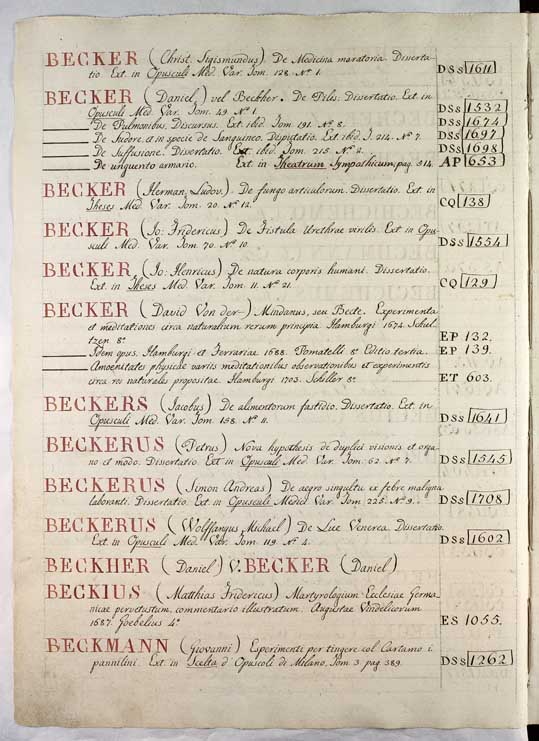 BECKER (Christ. Sigismundus). De Medicina moratoria. Disserta-
tio. Ext. in Opusculi Med. Var. Tom. 128. Nº 1. DSs 1611
BECKER (Daniel) vel Beckher. De Pilis: Dissertatio. Ext. in
Opusculi Med. Var. Tom. 49. Nº 1. DSs 1532
De Pulmonibus. Discursus. Ext. ibid. Tom 191. Nº 8. DSs 1674
De Sudore, et in specie de Sanguineo. Disputatio. Ext. ibid. T. 214. Nº 7. DSs 1697
De Suffusione. Dissertatio. Ext. ibid. Tom. 215. Nº 2. DSs 1698
De unguento armario. Ext in Theatrum Sympathicum, pag. 514. AP 653
BECKER (Herman. Ludov.) De fungo articulorum. Dissertatio. Ext. in
Theses Med. Var. Tom. 20. Nº 12. CQ 138
BECKER (Jo: Fridericus) De Fistula Urethrae virilis. Ext in Opu-
sculi Med. Var. Tom. 70. Nº 10. DSs 1554
BECKER (Jo: Henricus) De natura corporis humani. Dissertatio.
Ext. in Theses Med. Var. Tom. 11. Nº 21. CQ 129
BECKER (David Von der-) Mindanus, seu Becte. Experimenta
et meditationes circa naturalium rerum principia Hamburgi 1674. Schul-
tzen 8º EP 132.
Idem opus. Hamburgi et Ferrariae 1688. Pomatelli 8º Editio tertia. EP 139.
Amoenitates physicae variis meditationibus observationibus et experimentis
circa res naturales propositae. Hamburgi 1703. Schiller 8º. ET 603.
BECKERS (Jacobus) De alimentorum fastidio. Dissertatio. Ext. in
Opusculi Med. Var. Tom. 158. Nº 11. DSs 1641
BECKERUS (Petrus) Nova hypothesis de duplici visionis et orga-
no et modo. Dissertatio. Ext in Opusculi Med. Var. Tom. 62 Nº 7. DSs 1545
BECKERUS (Simon Andreas) De aegro singultu ex febre maligna
laboranti. Dissertatio. Ext. in Opusculi Medici Var. Tom 225. Nº 9. DSs 1708
BECKERUS (Wolffangus Michael) De Lue Venerea. Dissertatio
Ext. in Opusculi Med. Var. Tom. 119. Nº 4. DSs 1602
BECKHER (Daniel) V. BECKER (Daniel)
BECKIUS (Matthias Fridericus) Martyrologium Ecclesiae Germa-
nicae pervetustum, commentario illustratum. Augustae Vindelicorum
1687. Goebelius 4º ES 1055.
BECKMANN (Giovanni) Esperimenti per tingere col Cartamo i
pannilini. Ext. in Scelta d'Opuscoli di Milano, Tom 3. pag 389. DSs 1262